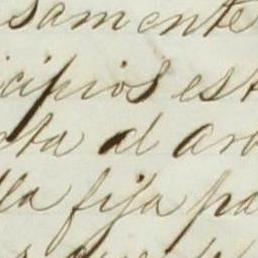 samente
cipios est
ta al arb
lla fija pa